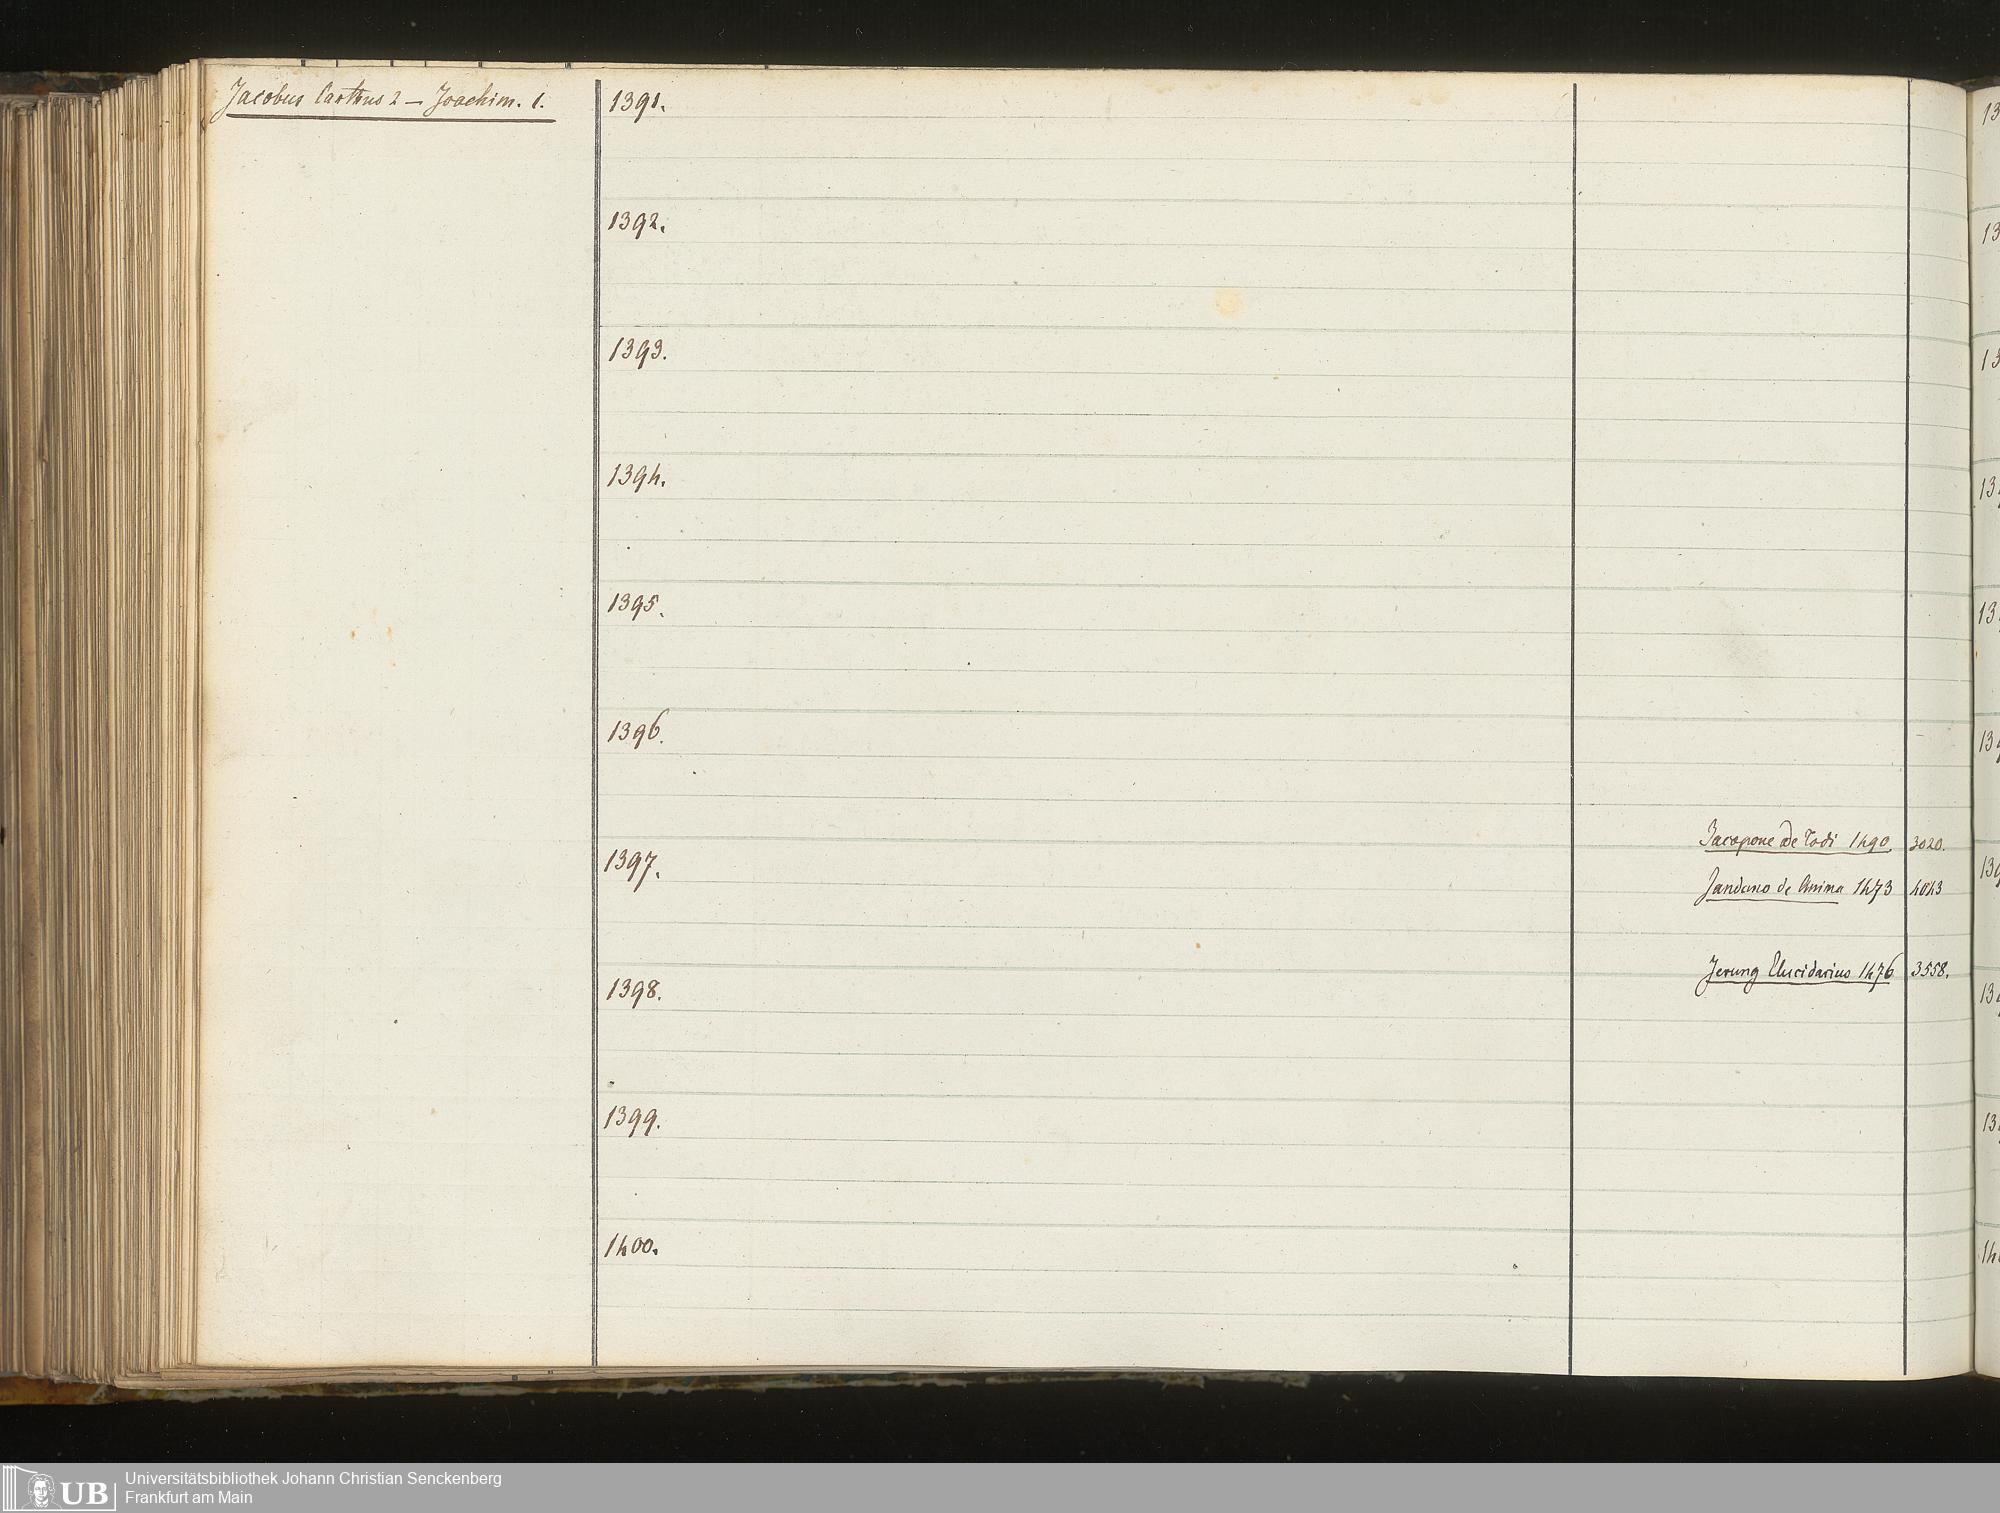 Jacobus Carthus 2 — Joachim. 1.
1391.
1392.
1393.
1394.
1395.
1396.
Jacopone de Todi 1490 3020.
1397.
Janduno de Anima 1473 4043
Jerung Elucidarius 1476 3558.
1398.
1399.
1400.
UB
Universitätsbibliothek Johann Christian Senckenberg
Frankfurt am Main